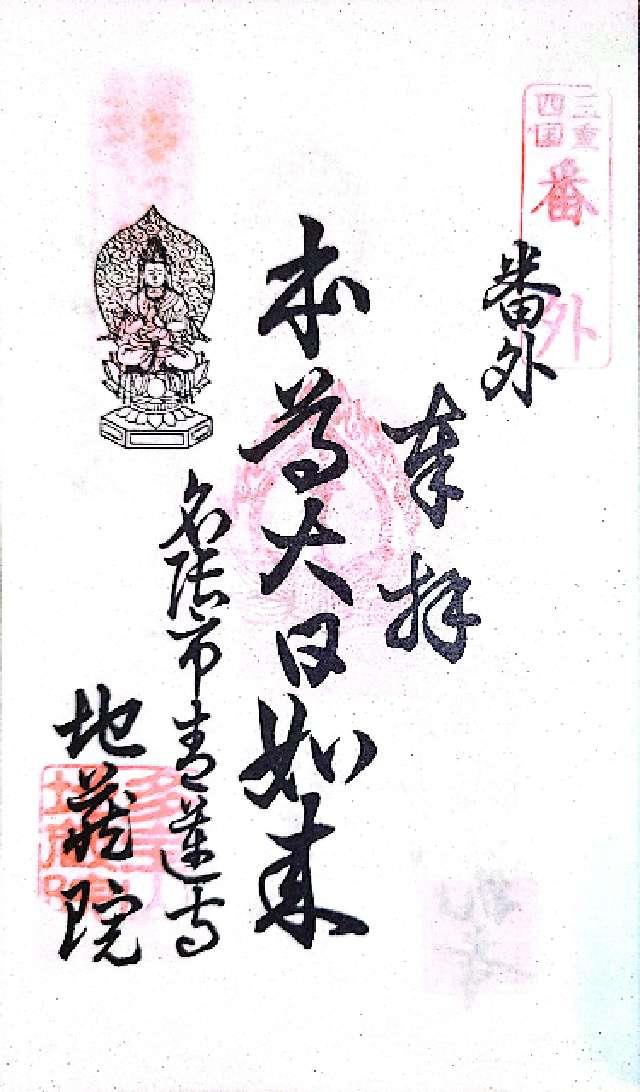 三重
四国
番外
番外
奉拝
本尊大日如来
名張市青蓮寺
地蔵院